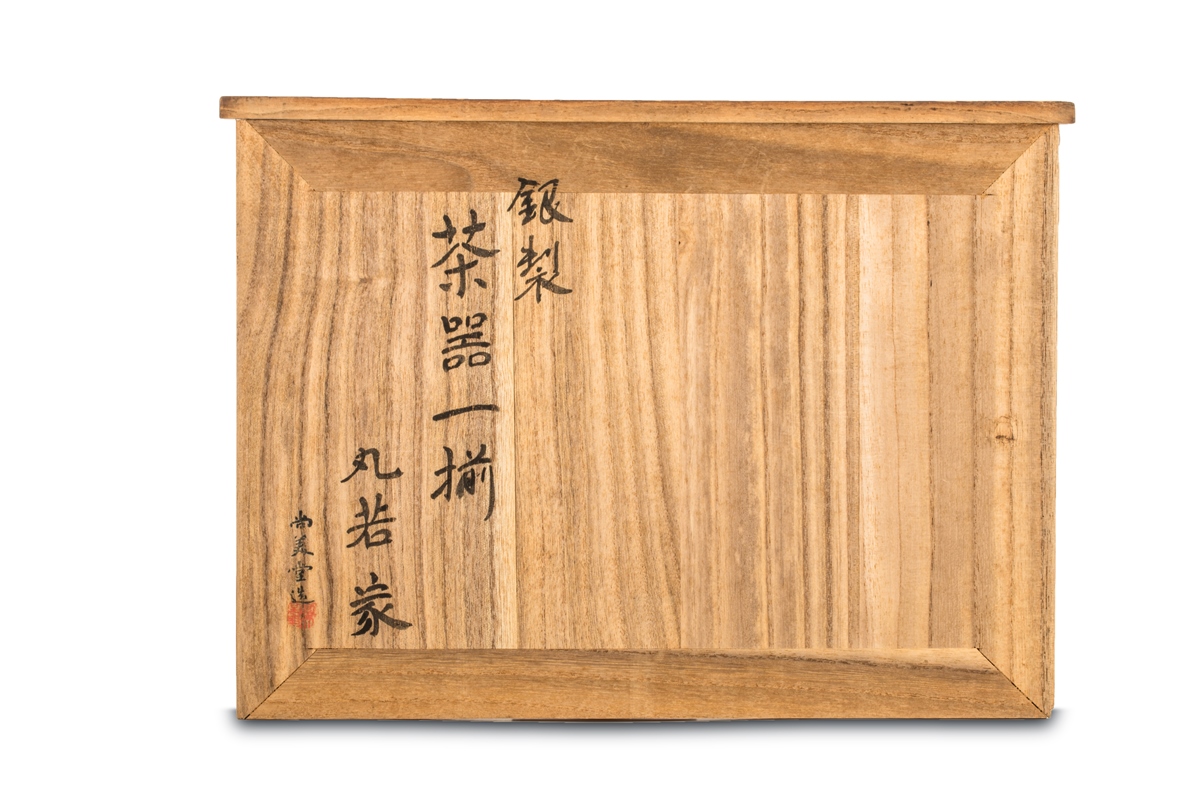 銀製
茶器一揃
丸若家
尚美堂造